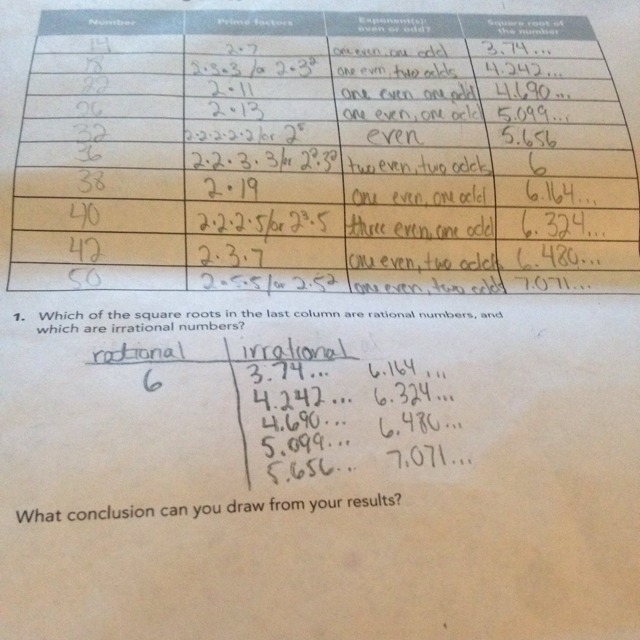 Number Prime factors Exponent(s): even or odd? Square root of the number
14 2·7 one even, one odd 3.74...
18 2·3·3 /or 2·3² one even, two odds 4.242...
22 2·11 one even one odd 4.690...
26 2·13 one even, one odd 5.099...
32 2·2·2·2·2/or 2⁵ even 5.656
36 2·2·3·3/or 2²·3² two even, two odds 6
38 2·19 one even, one odd 6.164...
40 2·2·2·5/or 2³·5 three even, one odd 6.324...
42 2·3·7 one even, two odds 6.480...
50 2·5·5/or 2·5² one even, two odds 7.071...
1. Which of the square roots in the last column are rational numbers, and
which are irrational numbers?
rational irrational
6 3.74... 6.164...
4.242... 6.324...
4.690... 6.480...
5.099... 7.071...
5.656...
What conclusion can you draw from your results?